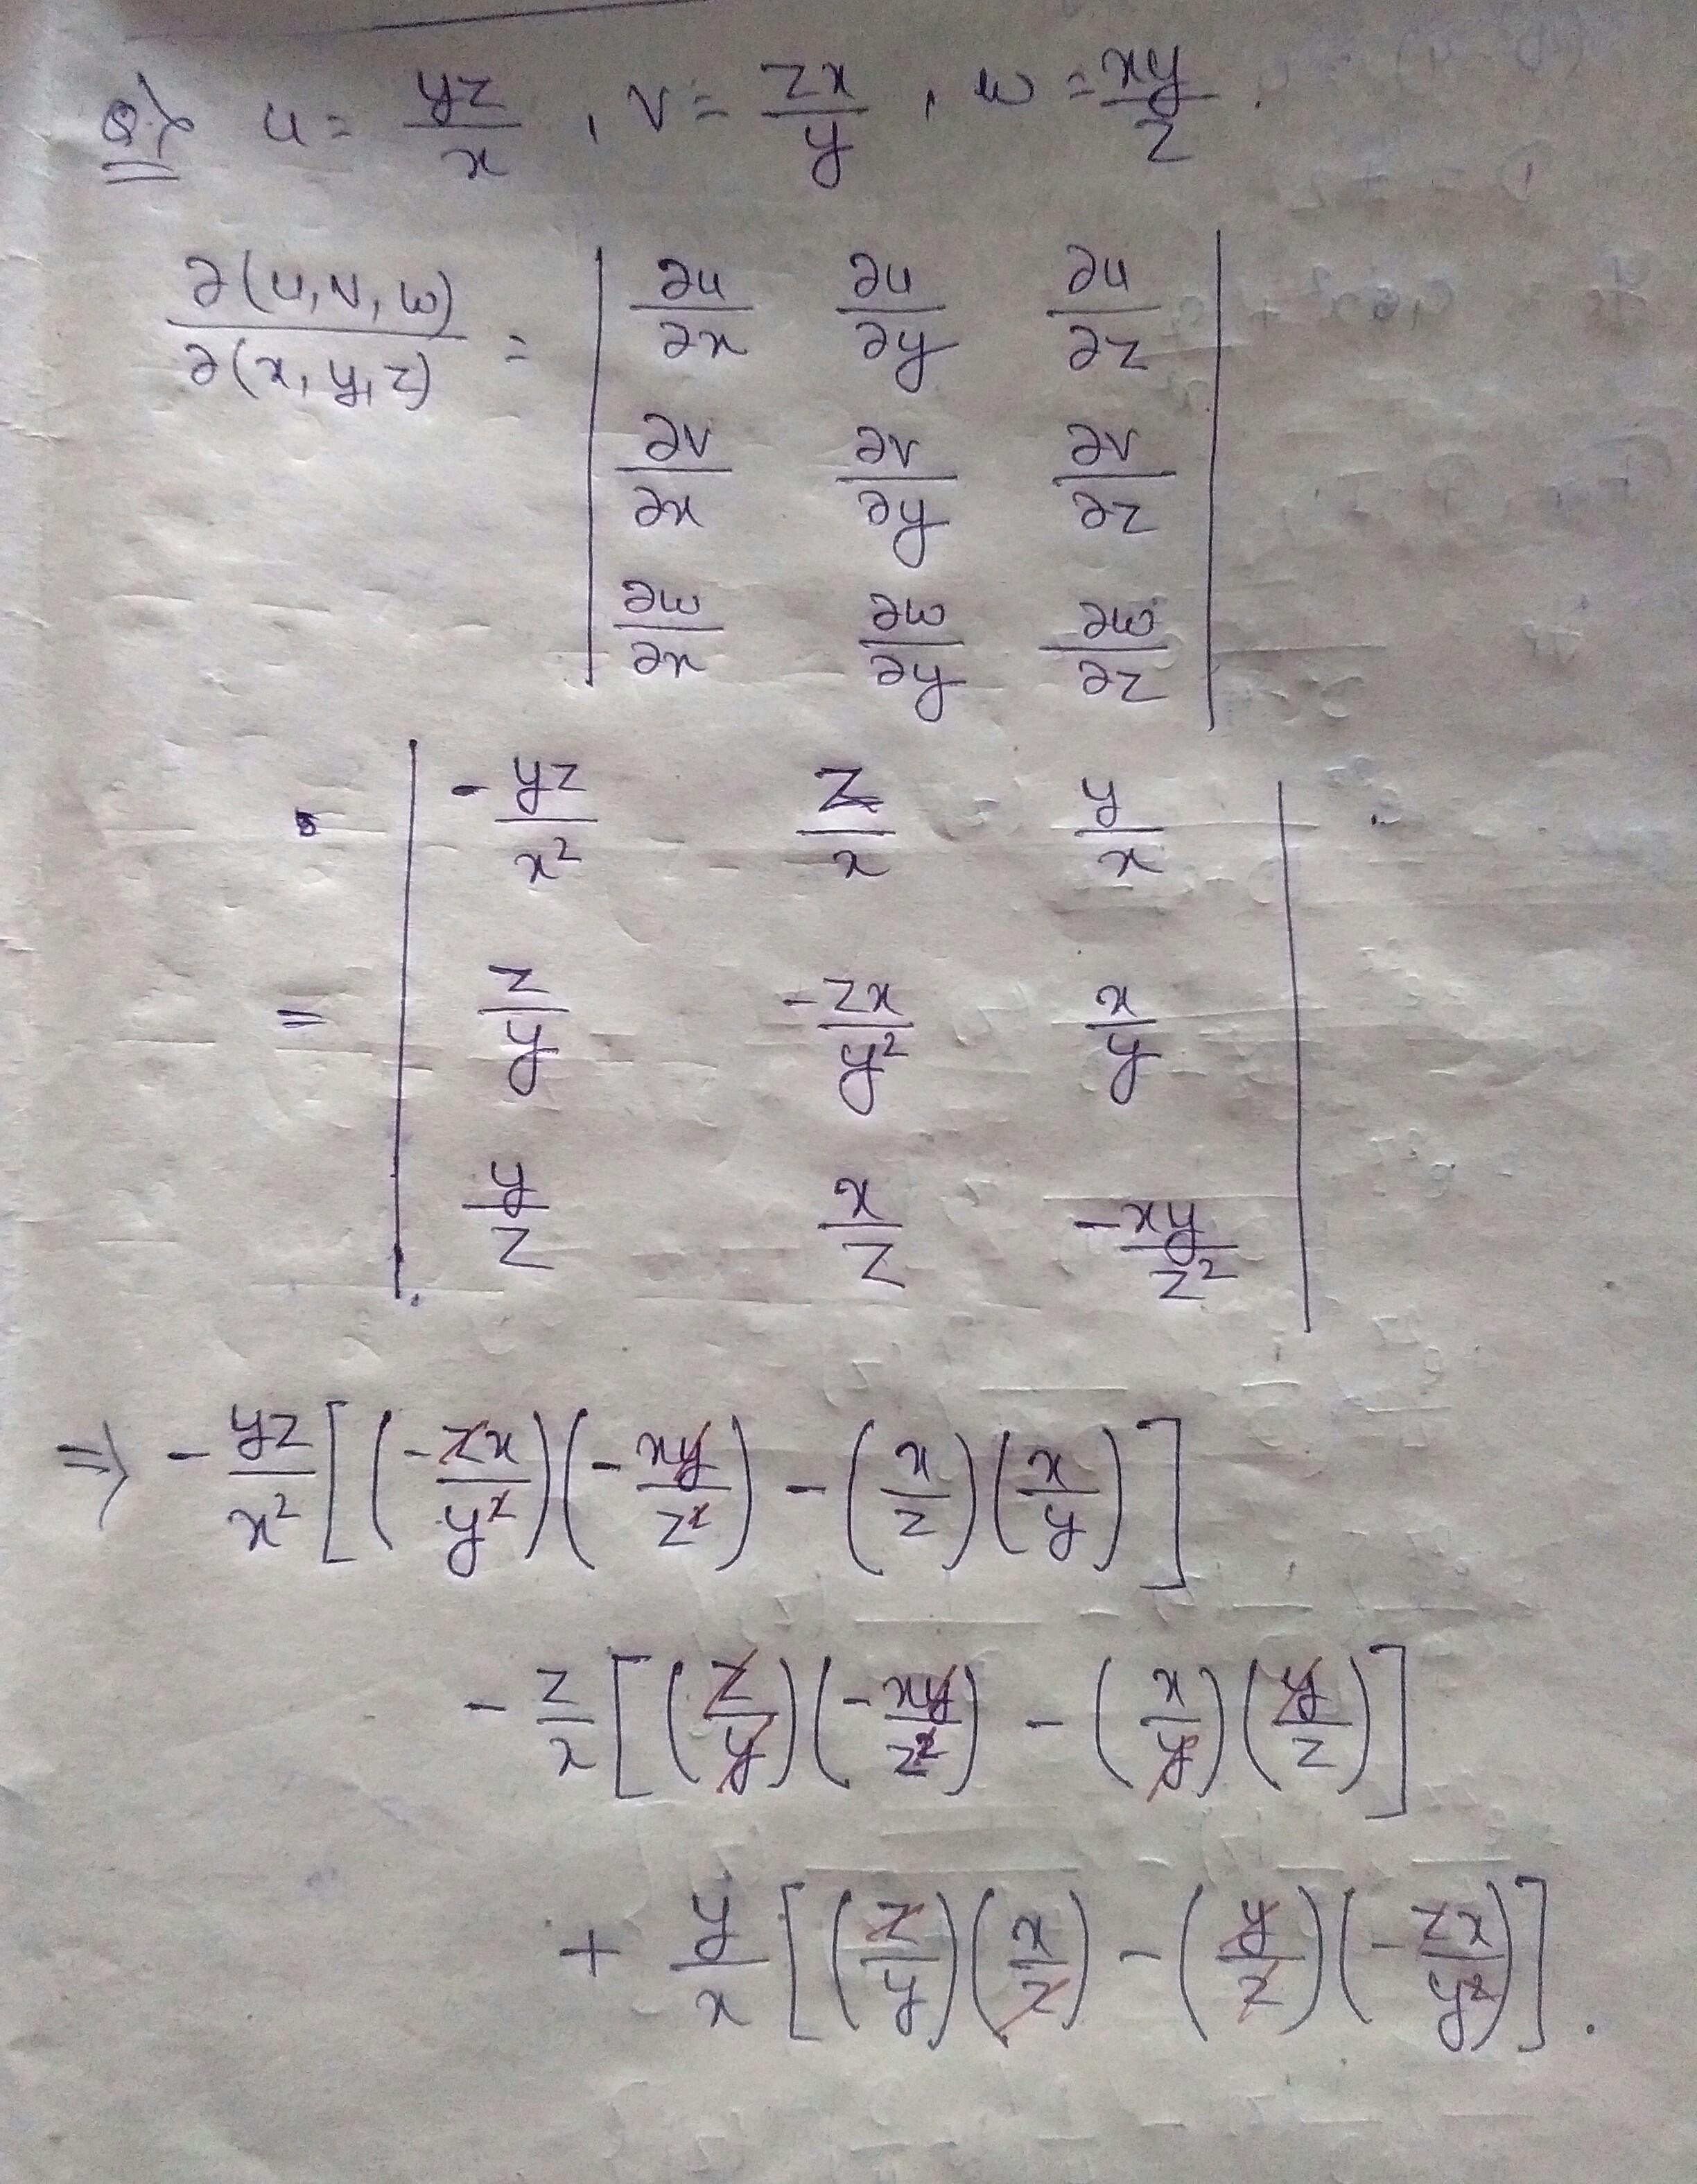 Q.) u = yz/x , v = zx/y , w = xy/z .
∂(u,v,w)/∂(x,y,z) = | ∂u/∂x ∂u/∂y ∂u/∂z |
| ∂v/∂x ∂v/∂y ∂v/∂z |
| ∂w/∂x ∂w/∂y ∂w/∂z |
| -yz/x² z/x y/x |
= | z/y -zx/y² x/y |
| y/z x/z -xy/z² |
⇒ - yz/x² [ (-zx/y²) (-xy/z²) - (x/z) (x/y) ]
- z/x [ (z/y) (-xy/z²) - (x/y) (y/z) ]
+ y/x [ (z/y) (x/z) - (y/z) (-zx/y²) ] .